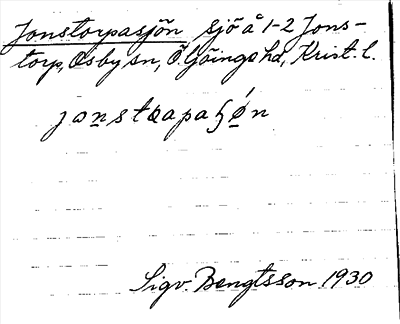 Jonstorpasjön sjö å 1-2 Jons-
torp, Osby sn, Ö. Göinge hd, Krist. l.
Sigv. Bengtsson 1930